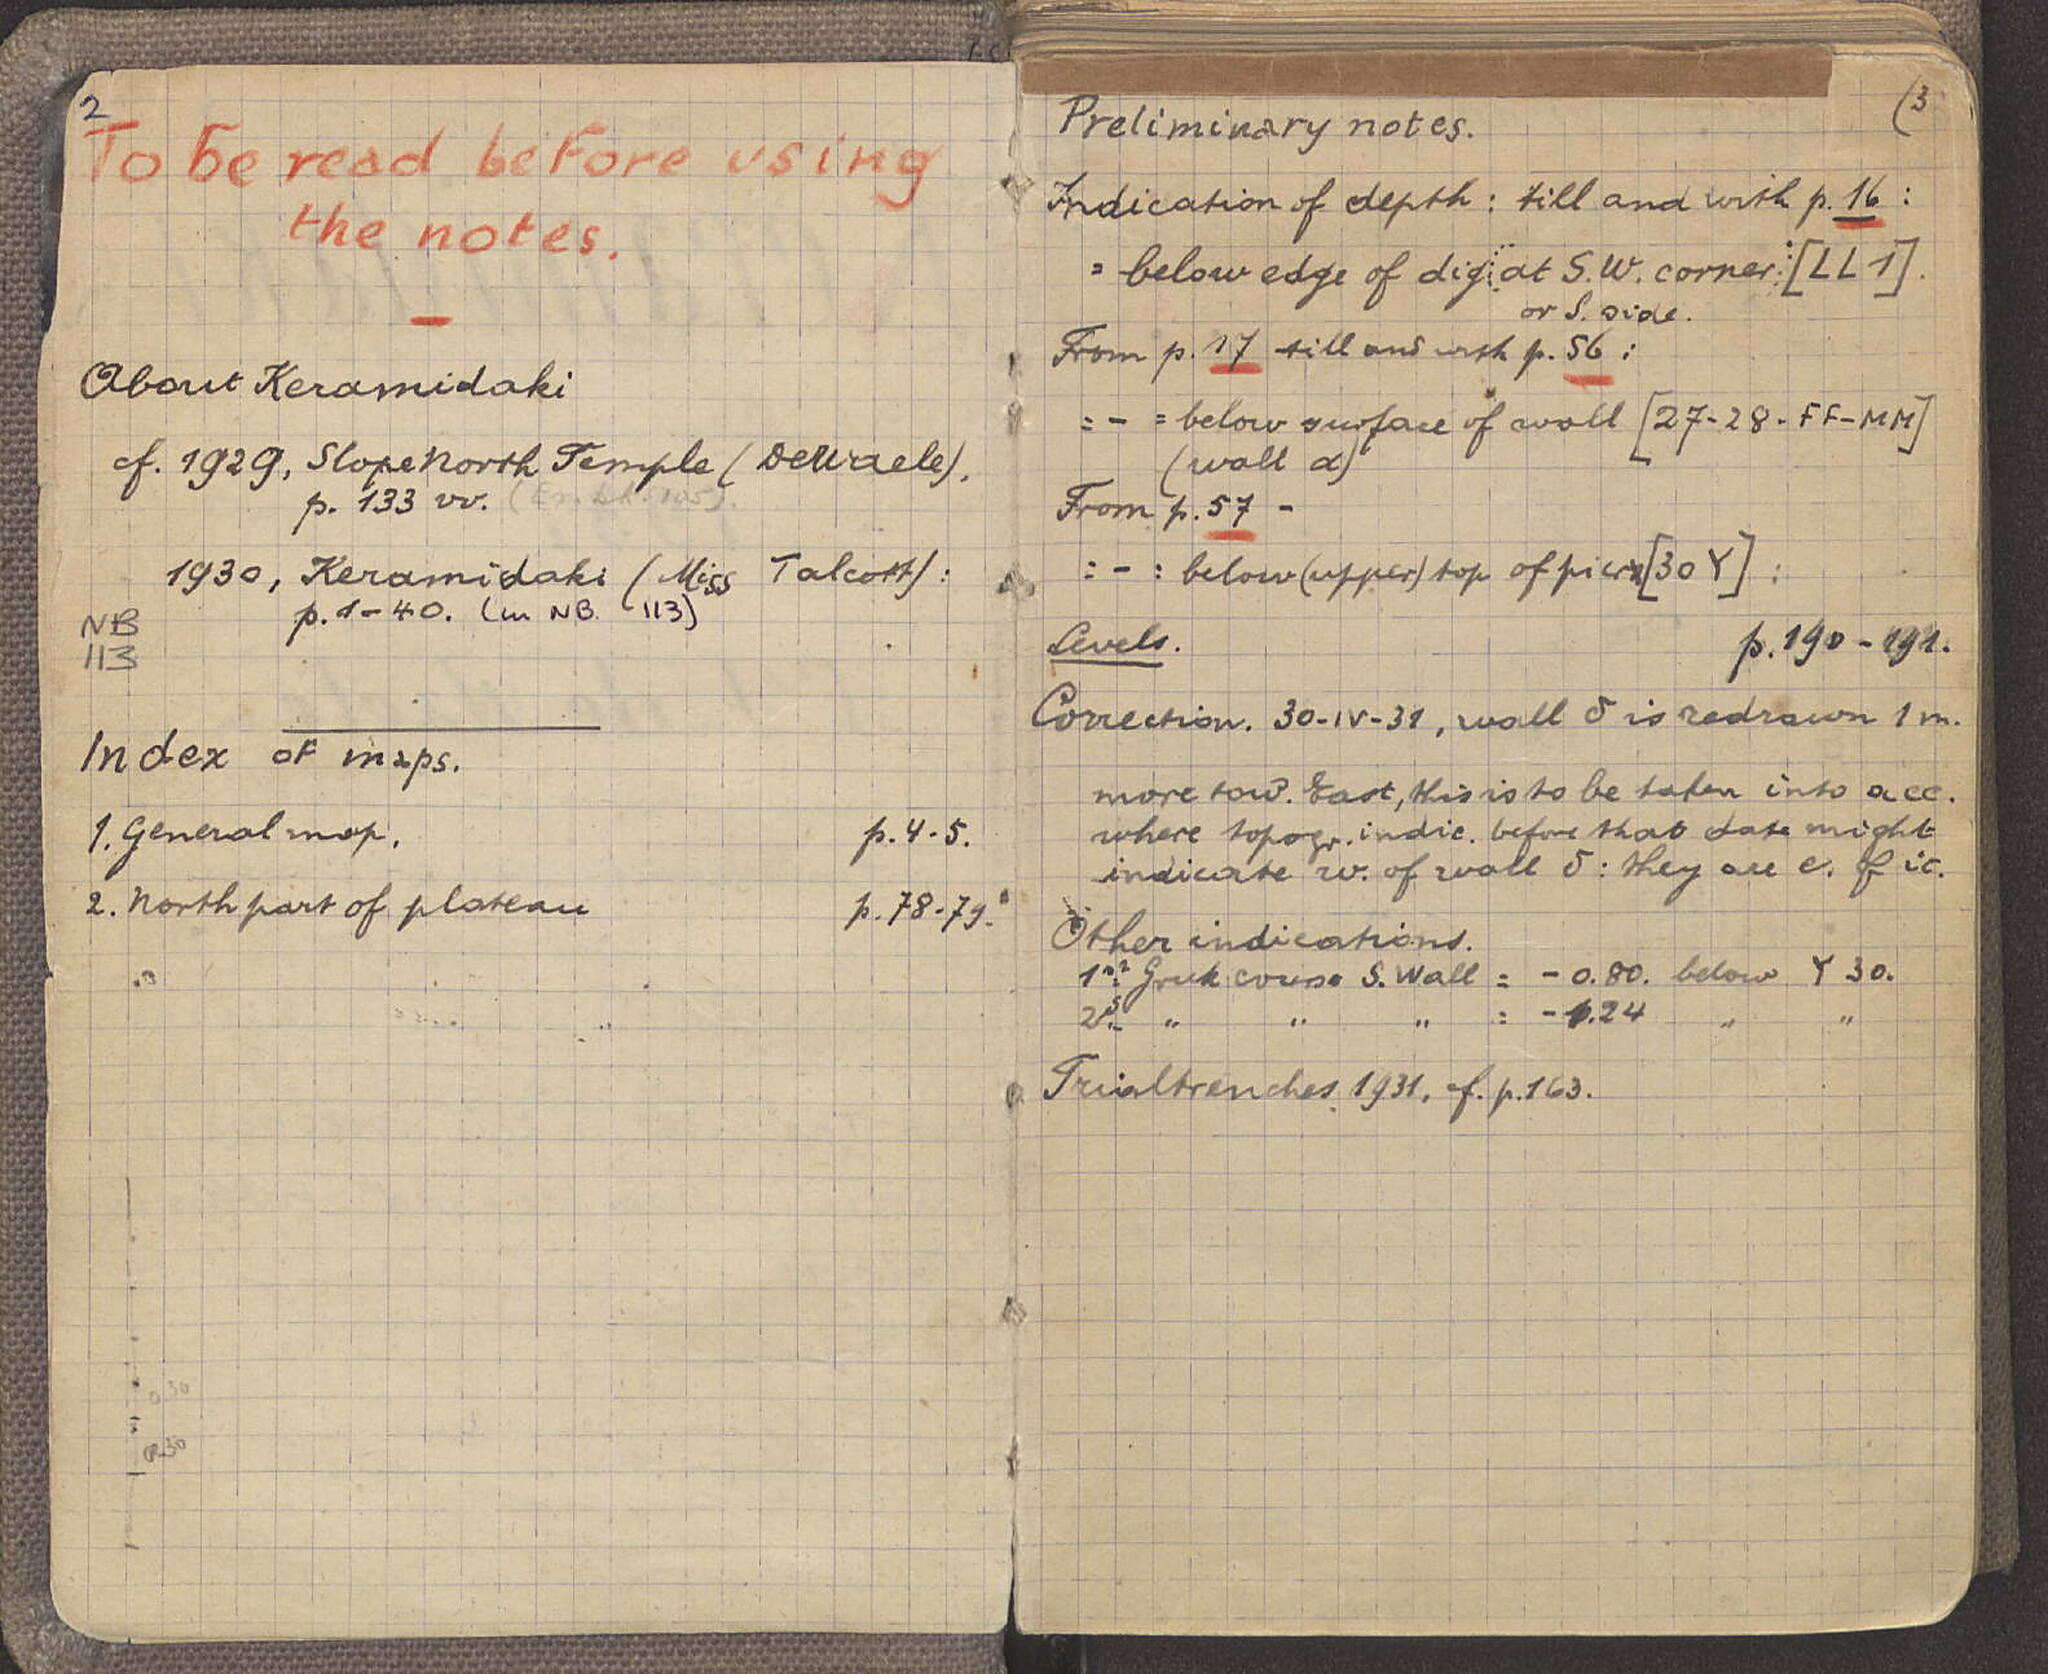 2
To be read before using
the notes.
About Keramidaki
cf. 1929, Slope North Temple (DeWaele).
p. 133 vv.
1930, Keramidaki (Miss Talcott):
p. 1-40. (in NB 113)
NB
113
Index of maps.
1. General map. p. 4-5.
2. North part of plateau p. 78-79.
0.30
0.30
(3
Preliminary notes.
Indication of depth: till and with p. 16:
= below edge of dig: at S.W. corner: [LL 1].
or S. side.
From p. 17 till and with p. 56:
= - = below surface of wall [27-28-FF-MM]
(wall α)
From p. 57 -
: - : below (upper) top of pier [30 Y]:
Levels. p. 190-191.
Correction. 30-IV-31, wall δ is redrawn 1 m.
more tow. East, this is to be taken into acc.
where topogr. indic. before that date might
indicate w. of wall δ: they are e. of it.
Other indications.
1st Greek course S. Wall = -0.80. below Y 30.
2d " " " = -1.24 " "
Trialtrenches 1931, cf. p. 163.